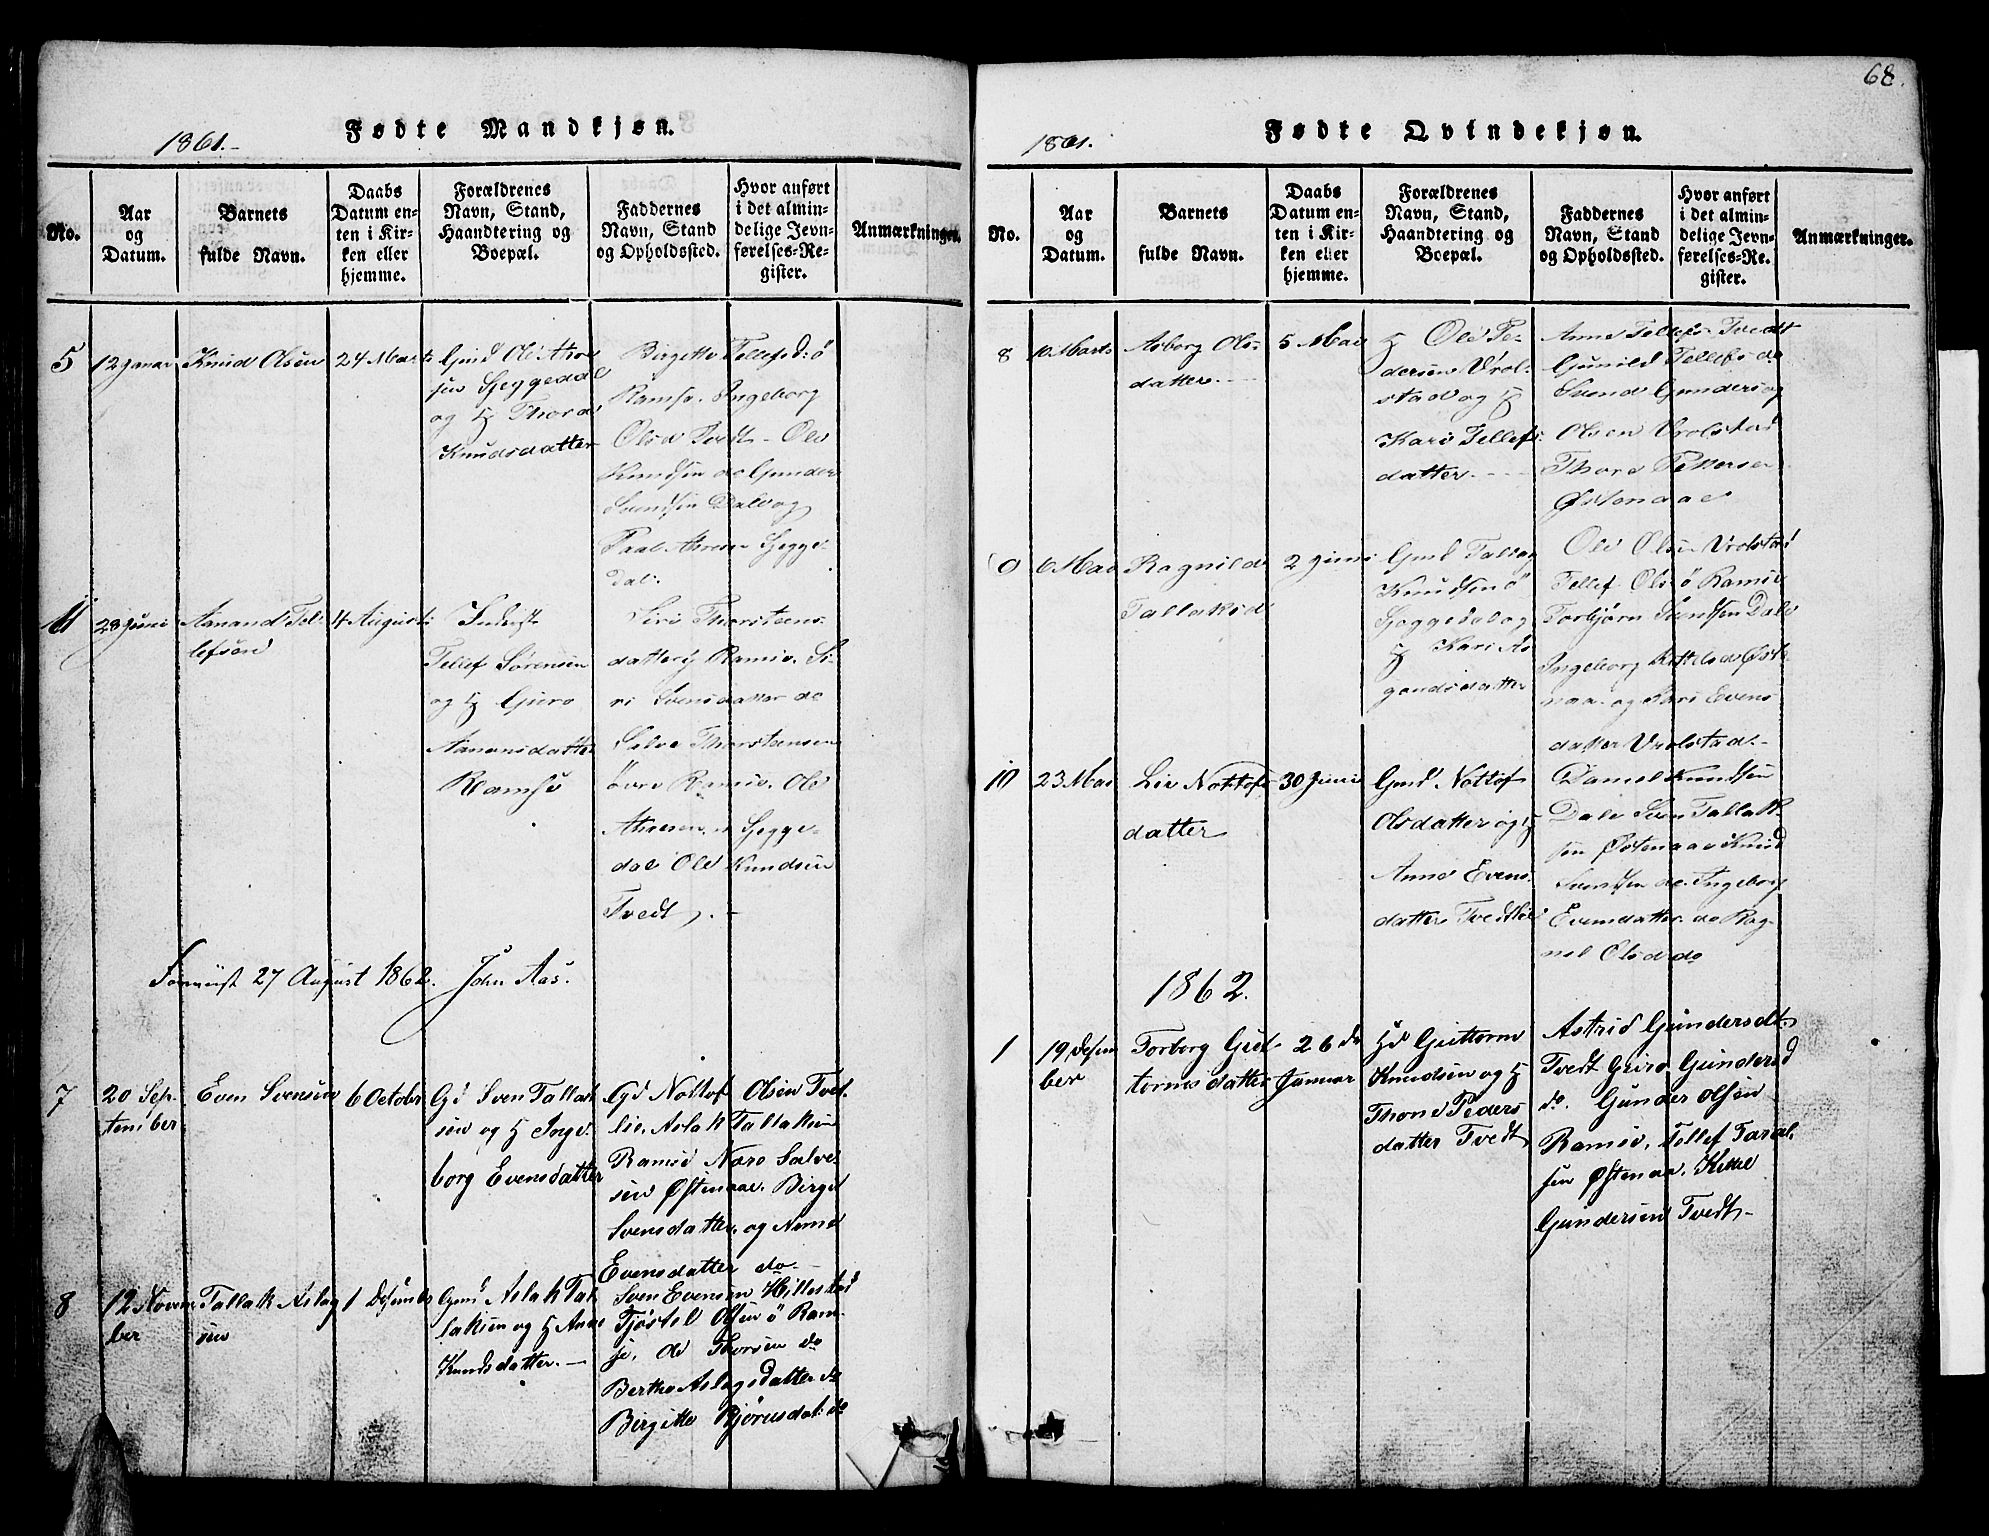 1861.
Fødte Mandkjøn.
No.
Aar
og
Datum.
Barnets
fulde Navn.
Daabs
Datum en-
ten i Kir-
ken eller
hjemme.
Forældrenes
Navn, Stand,
Haandtering og
Boepæl.
Faddernes
Navn, Stand
og Opholdssted.
Hvor anført
i det almin-
delige Jevn-
førelses-Re-
gister.
Anmærkninger.
5
12 Januar
Knud Olsen
24 Marts
Gmd Ole
sen Heggedal
og H Thord
Knudsdatter
Birgitte Tellefsd: ö
Ramse. Ingeborg
Olsd Tvedt - Ole
Knudsen do Gunder
Svendsen Dale og
Paal Heggedal
dal.
28 Juni
Aanand Tel-
lefsen
4 August
Inderst
Tellef Sørensen
og H Guro
Aanonsdatter
Ramse
Siri Thorsteens-
datter y Ramse. Si-
ri Svensdatter do
Salve Thorsteensen
övre Ramse. Ole
Hegge-
dal Ole Knudsen
Tvedt. -
27 August 1862. John Aas.
7
20 Sep-
tember
Even Svensen
6 October
Gd Sven Tallak
sen og H Inge-
borg Evensdatter
Gd Nottof Olsen Tvet-
lie. Aslak Tallaksen
Ramse Salve-
sen Østenaae. Birgit
Svensdatter. og Anne
Evensdatter do -
8
12 Novem
ber
Tallak Aslag
sen
1 Desember
Gmd Aslak Tal
laksen og H Anne
Knudsdatter. -
Sven Evensen Hillestad
Tjøstel Olsen ö Ram-
se, Ole Thorsen do
Berthe Aslagsdatter do
Birgitte Bjørnsdat: do
68.
1861.
Fødte Qvindekjøn.
No.
Aar
og
Datum.
Barnets
fulde Navn.
Daabs
Datum en-
ten i Kir-
ken eller
hjemme.
Forældrenes
Navn, Stand,
Haandtering og
Boepæl.
Faddernes
Navn, Stand
og Opholdssted.
Hvor anført
i det almin-
delige Jevn-
førelses-Re-
gister.
Anmærkninger.
8
10 Marts
Asborg Ols-
datter. -
5 Mai
H Ole Pe-
dersen Vrol-
stad og H
Kari Tellefs-
datter. - -
Anne Tellefs- Tvedt
Gunild Tellefs do
Svend Gunders og
Olsen Vrolstad
Thore Pettersen
Østenaae
6 Mai
Ragnild
Tallaksd
2 Juni
Gmd Tallag
Knudsen ö
Heggedal og
H Kari As
gundsdatter
Ole Olsen Vrolstad
Tellef Ols: ö Ramse
Torbjørn Svendsen Dale
Ingeborg Kittelsd Øste-
naa. og Kari Evens
datter Vrolstad.-
10
23 Mai
Liv Nottofs
datter
30 Juni
Gmd Nottof
Olsdatter og H
Anne Evens-
datter Tvedtlie
Daniel Knudsen
Dale Sven Tallak-
sen Østenaae Knud
Svendsen do. Ingeborg
Evensdatter do Rag-
nil Olsd do
1862.
1
19 Desem
ber
Torborg Gut
tormsdatter
26 de
Januar
Gd Guttorm
Knudsen og H
Thone Peders
datter Tvedt
Astrid Gundersdt:
Tvedt Guro Gundersd
do. Gunder Olsen
Ramse, Tellef Taral-
sen Østenaa. Kittel
Gundersen Tvedt -